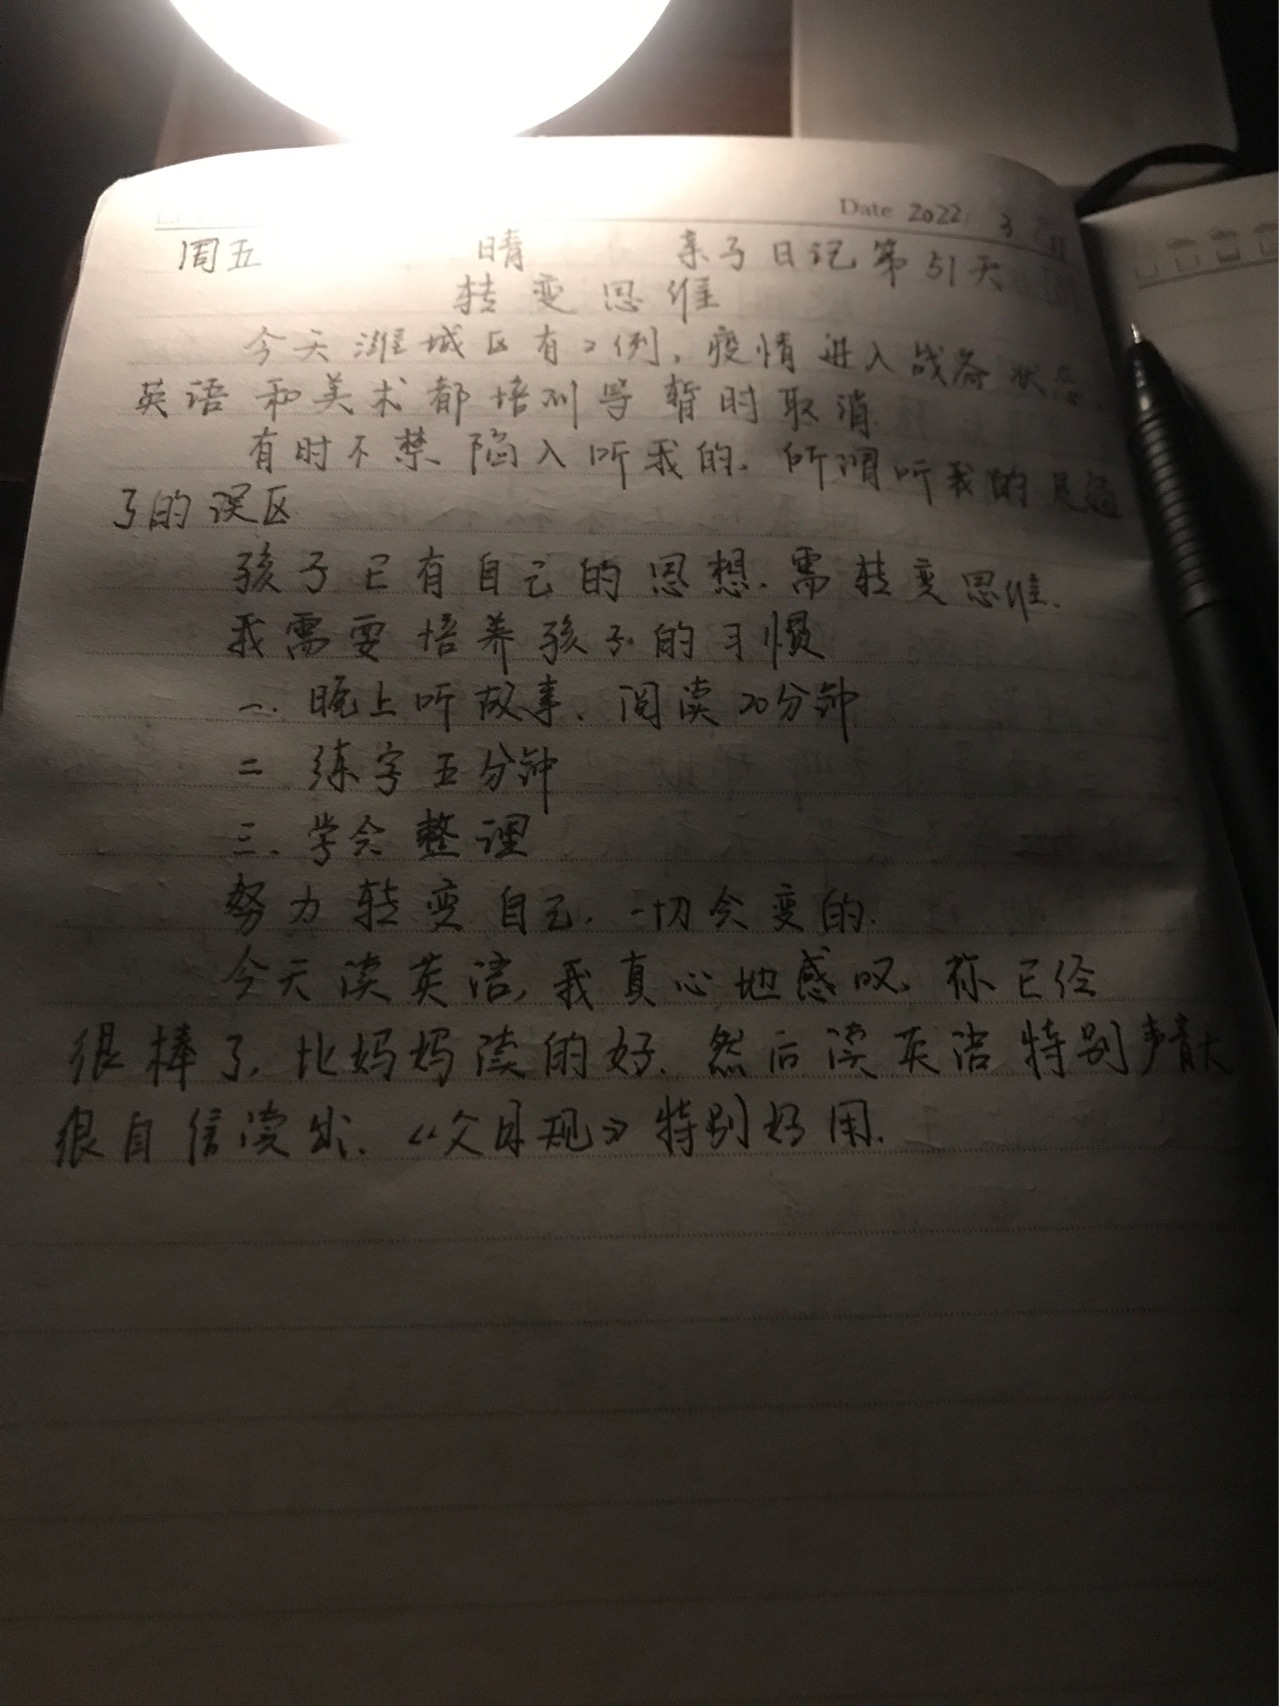 Date 2022 3
周五 晴 亲子日记第51天
转变思维
今天潍城区有2例,疫情进入战备状态,
英语和美术都培训等暂时取消
有时不禁陷入听我的、所谓听我的是
了的误区
孩子已有自己的思想.需转变思维.
我需要培养孩子的习惯
一.晚上听故事、阅读20分钟
二 练字五分钟
三.学会整理
努力转变自己.一切会变的.
今天读英语,我真心地感叹,你已经
很棒了,比妈妈读的好.然后读英语特别声音大
很自信读出.《父母规》特别好用.